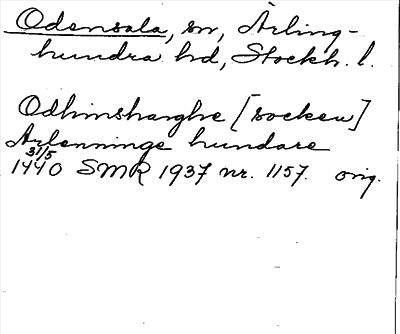 Odensala, sn, Ärling-
hundra hd, Stockh. l.
Odhinsharghe [socken]
Arlenninge hundare
31/5
1440 SMR 1937 nr. 1157. orig.